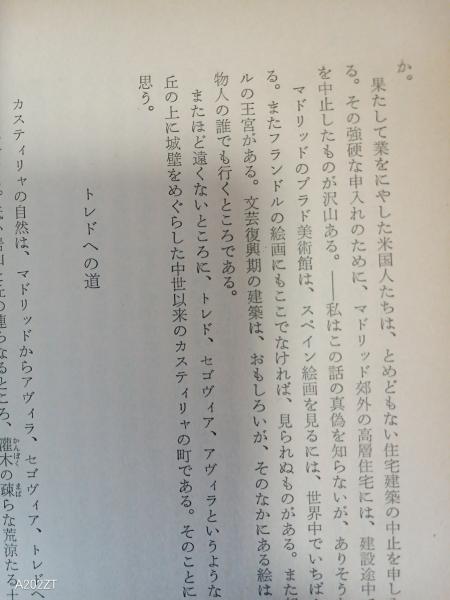 か。
果たして業をにやした米国人たちは、とめどもない住宅建築の中止を申し
る。その強硬な申入れのために、マドリッド郊外の高層住宅には、建設途中で
を中止したものが沢山ある。――私はこの話の真偽を知らないが、ありそう
マドリッドのプラド美術館は、スペイン絵画を見るには、世界中でいちば
る。またフランドルの絵画にもここでなければ、見られぬものがある。また
ルの王宮がある。文芸復興期の建築は、おもしろいが、そのなかにある絵は
物人の誰でも行くところである。
またほど遠くないところに、トレド、セゴヴィア、アヴィラというような
丘の上に城壁をめぐらした中世以来のカスティリャの町である。そのことに
思う。
トレドへの道
カスティリャの自然は、マドリッドからアヴィラ、セゴヴィア、トレドへ
の連なるところ、灌木の疎らな荒涼たる
A202ZT